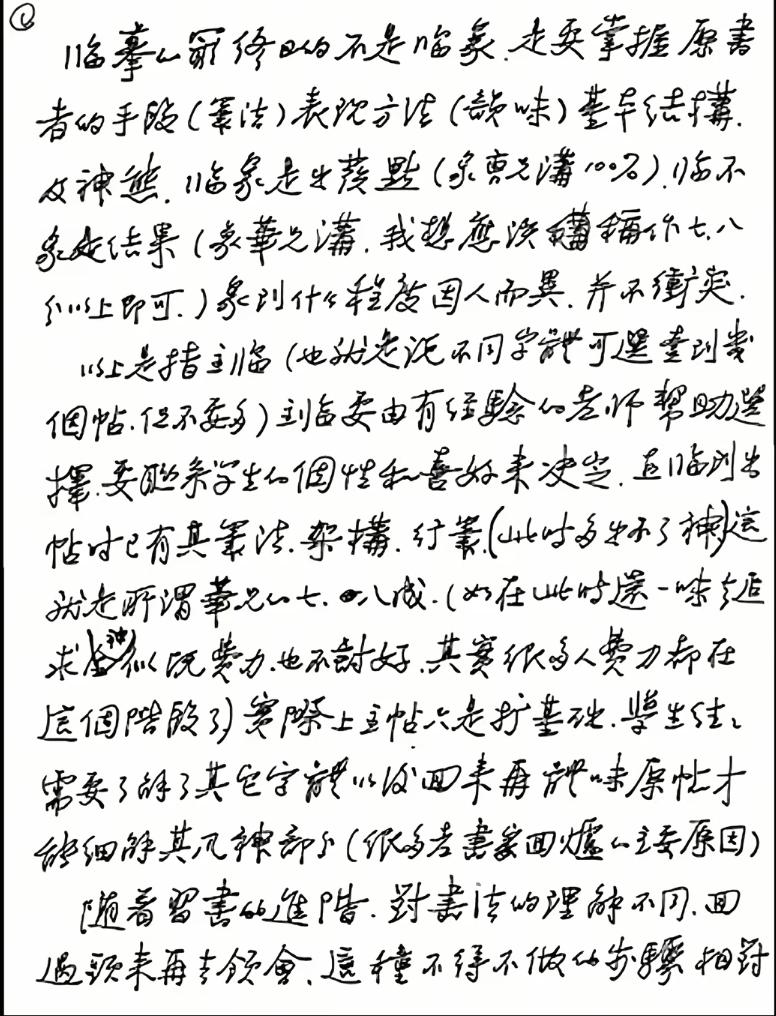 ①
临摹的最终目的不是临象.是要掌握原書
者的手段(筆法)表現方法(韻味)基本結構.
及神態.临象是出發點(象曹兄講100%).临不
象是結果(象華兄講.我想應該講稱作七.八
分以上即可.)象到什么程度因人而異.并不衝突.
以上是指主临(也就是说不同字體可選查到幾
個帖.但不要多)主临要由有经驗的老师幫助選
擇.要联系学生的個性和喜好来决定.在临到出
帖时已有其筆法.架構.行筆.(此时多出不了神)這
就是所謂華兄的七.八成.(如在此时還一味去追
求神似既費力.也不討好.其實很多人費力都在
這個階段了)實際上主帖只是打基础.學生往々
需要了解了其它字體以後回来再體味原帖才
能細解其風神部分(很多老書家回爐的主要原因)
随着習書的進階.對書法的理解不同.回
過頭来再去领會.這種不得不做的步驟相對